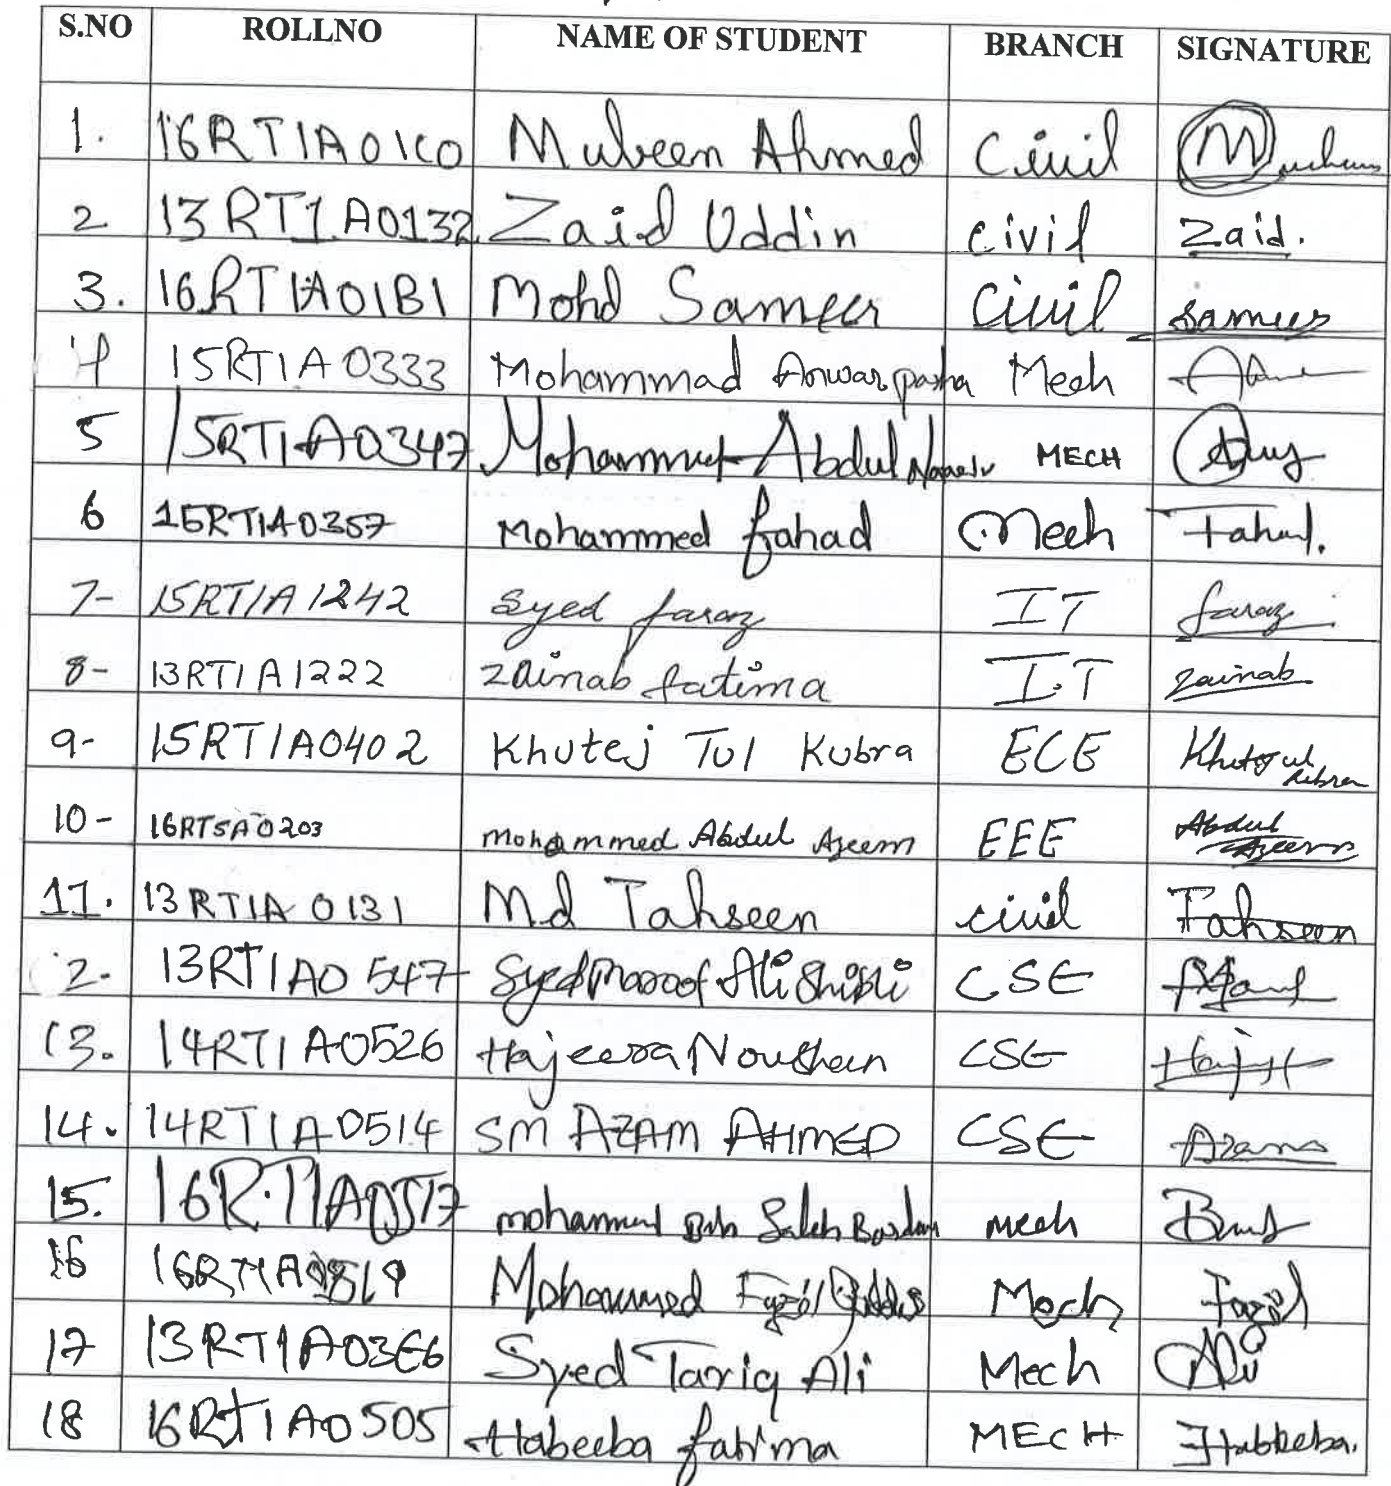 S.NO ROLLNO NAME OF STUDENT BRANCH SIGNATURE
1. 16RT1A01C0 Mubeen Ahmed Civil
2 13RT1A0132 Zaid Uddin civil Zaid.
3. 16RT1A01B1 Mohd Sameer Civil Sameer
4 15RT1A0333 Mohammad Anwar pasha Mech
5 15RT1A0347 Mohammed Abdul MECH
6 15RT1A0357 Mohammed fahad Mech Fahad.
7- 15RT1A1242 Syed faraz IT faraz
8- 13RT1A1222 Zainab fatima I.T Zainab
9- 15RT1A0402 Khutej Tul Kubra ECE
10- 16RT5A0203 Mohammed Abdul Azeem EEE Abdul Azeem
11. 13RT1A0131 Md Tahseen civil Tahseen
2. 13RT1A0547 Syed Maroof Ali Shibli CSE
13. 14RT1A0526 Hajeera Nousheen CSE
14. 14RT1A0514 SM AZAM AHMED CSE Azam
15. mohammed Bin Saleh mech
16 Mohammed Mech
17 13RT1A03E6 Syed Tariq Ali Mech Ali
18 16RT1A0505 Habeeba fatima MECH Habeeba.